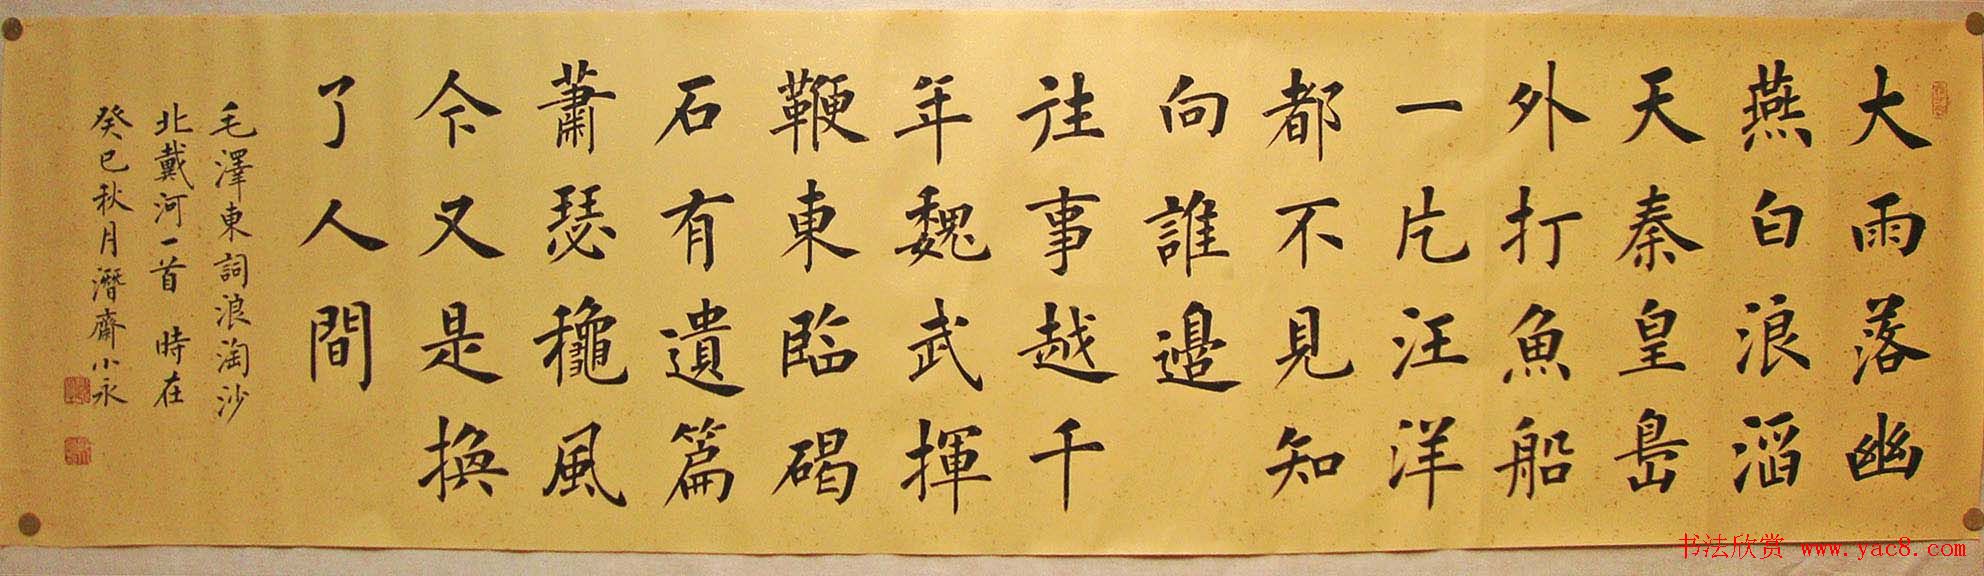 大雨落幽
燕白浪滔
天秦皇島
外打魚船
一片汪洋
都不見知
向誰邊
往事越千
年魏武揮
鞭東臨碣
石有遺篇
蕭瑟穐風
今又是換
了人間
毛澤東詞浪淘沙
北戴河一首 時在
癸巳秋月潛齋小永
书法欣赏 www.yac8.com